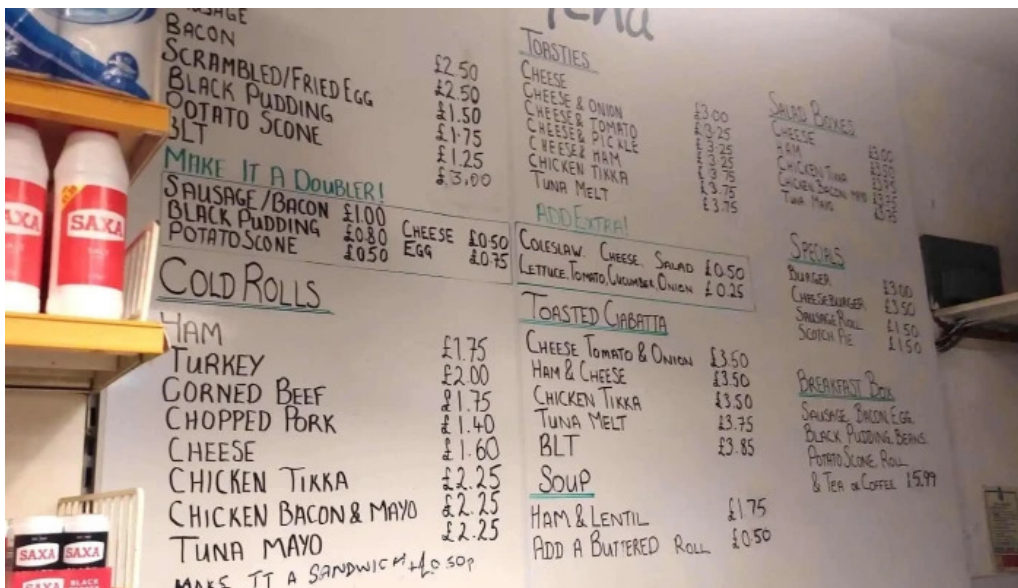 SAUSAGE
BACON £2.50
SCRAMBLED/FRIED EGG £2.50
BLACK PUDDING £1.50
POTATO SCONE £1.75
BLT £1.25
£3.00
MAKE IT A DOUBLER!
SAUSAGE/BACON £1.00
BLACK PUDDING £0.80 CHEESE £0.50
POTATO SCONE £0.50 EGG £0.75
COLD ROLLS
HAM £1.75
TURKEY £2.00
CORNED BEEF £1.75
CHOPPED PORK £1.40
CHEESE £1.60
CHICKEN TIKKA £2.25
CHICKEN BACON & MAYO £2.25
TUNA MAYO £2.25
MAKE IT A SANDWICH + £0.50p
TOASTIES
CHEESE £3.00
CHEESE & ONION £3.25
CHEESE & TOMATO £3.25
CHEESE & PICKLE £3.25
CHEESE & HAM £3.75
CHICKEN TIKKA £3.75
TUNA MELT £3.75
ADD EXTRA!
COLESLAW, CHEESE, SALAD £0.50
LETTUCE, TOMATO, CUCUMBER, ONION £0.25
TOASTED CIABATTA
CHEESE TOMATO & ONION £3.50
HAM & CHEESE £3.50
CHICKEN TIKKA £3.50
TUNA MELT £3.75
BLT £3.85
SOUP
HAM & LENTIL £1.75
ADD A BUTTERED ROLL £0.50
SALAD BOXES
CHEESE £3.00
HAM
CHICKEN TIKKA
CHICKEN BACON MAYO
TUNA MAYO
SPECIALS
BURGER £3.00
CHEESEBURGER £3.50
SAUSAGE ROLL £1.50
SCOTCH PIE £1.50
BREAKFAST BOX
SAUSAGE, BACON, EGG,
BLACK PUDDING, BEANS,
POTATO SCONE, ROLL
& TEA OR COFFEE £5.99
SAXA
SAXA
SAXA
SAXA
SAXA BLACK